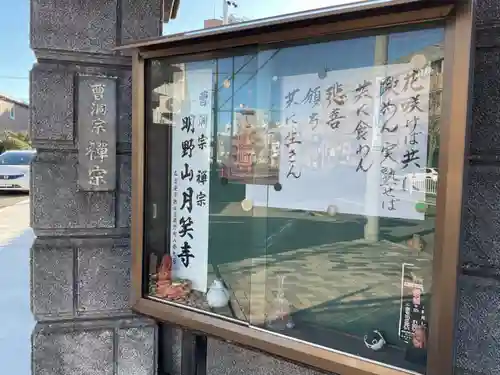 曹洞宗 禅宗
曹洞宗 禅宗
明野山月笑寺
花咲けば共に
眺めん 実熟せば
共に食わん
悲喜
頒ち
共に生きん